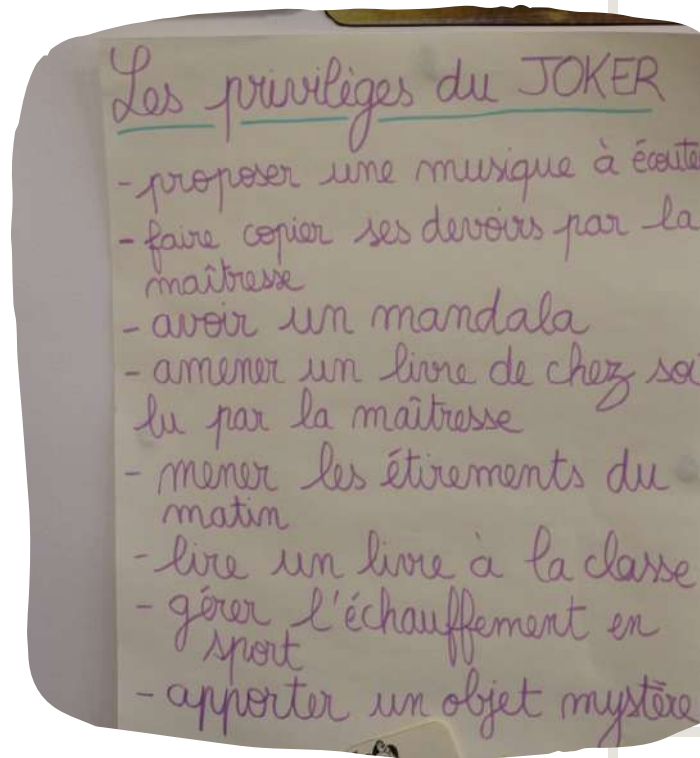 Les privilèges du JOKER
- proposer une musique à écouter
- faire copier ses devoirs par la
maîtresse
- avoir un mandala
- amener un livre de chez soi
lu par la maîtresse
- mener les étirements du
matin
- lire un livre à la classe
- gérer l'échauffement en
sport
- apporter un objet mystère